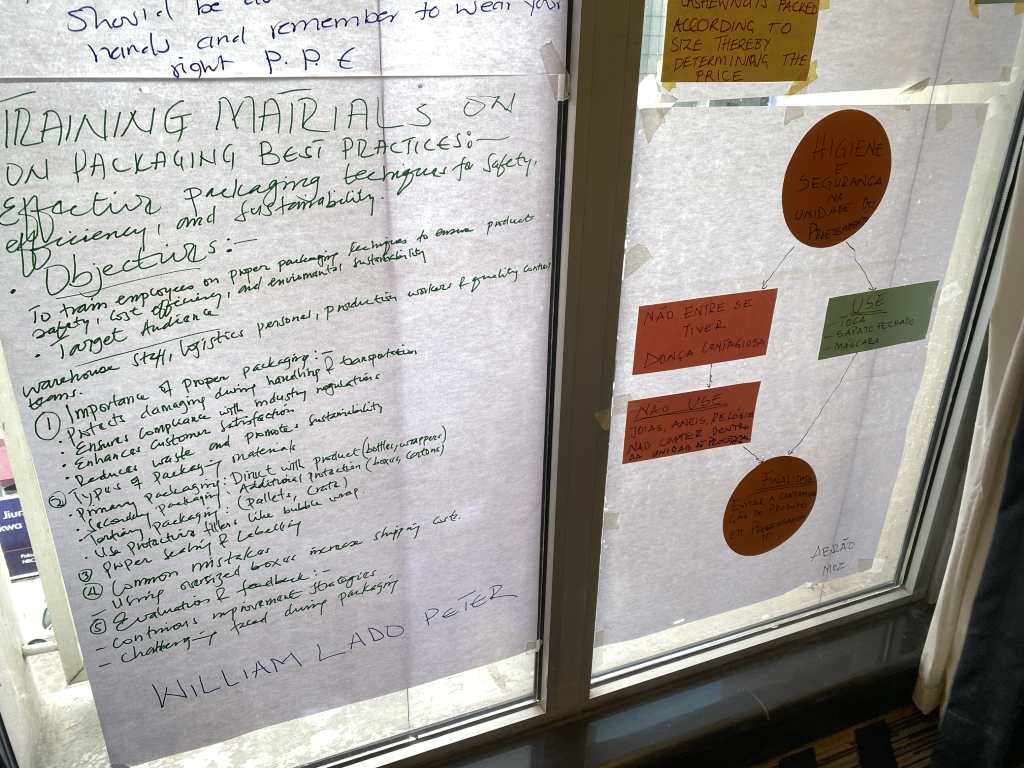 Should be
hands and remember to wear your
right P.P.E
TRAINING MATRIALS ON
ON PACKAGING BEST PRACTICES:-
Effective packaging techniques for safety,
efficiency, and sustainability.
• Objectives:-
To train employees on proper packaging techniques to ensure product
safety, cost efficiency, and enviromental sustainability
• Target Audience
warehouse staff, logistics personal, production workers & quality control
teams.
① Importance of proper packaging:-
• Protects damaging during handling & transportation
• Ensures compliance with industry regulations
• Enhances customer satisfaction
• Reduces waste and promotes sustainability
② Types of packaging materials
• Primary packaging: Direct with product (bottles, wrappers)
• Secondary packaging: Additional protection (boxes, cartons)
• Tertiary packaging: (pallets, crate)
• Use protective fillers like bubble wrap.
③ proper sealing & labelling
④ Common mistakes
- Using oversized boxes increase shipping costs.
⑤ Evaluation & feedback:-
- Continous improvement strategies
- Challenging faced during packaging
WILLIAM LADO PETER
CASHEWNUTS PACKED
ACCORDING TO
SIZE THEREBY
DETERMINING THE
PRICE
HIGIENE
E
SEGURANÇA
NA
UNIDADE DE
NÃO ENTRE SE
TIVER
DONÇA CONTAGIOSA
USE
- TOCA
- SAPATO FECHADO
- MASCARA
NÃO USE
JOIAS, ANEIS, RELOGIO
NÃO COMER DENTRO
DA UNIDAD DE
FINALIDADE
EVITAR A CONTAMINA
ÇÃO DO PRODUTO
EM PROCESSAMEN
TO
ABRÃO
MOZ
Jiun
kwa